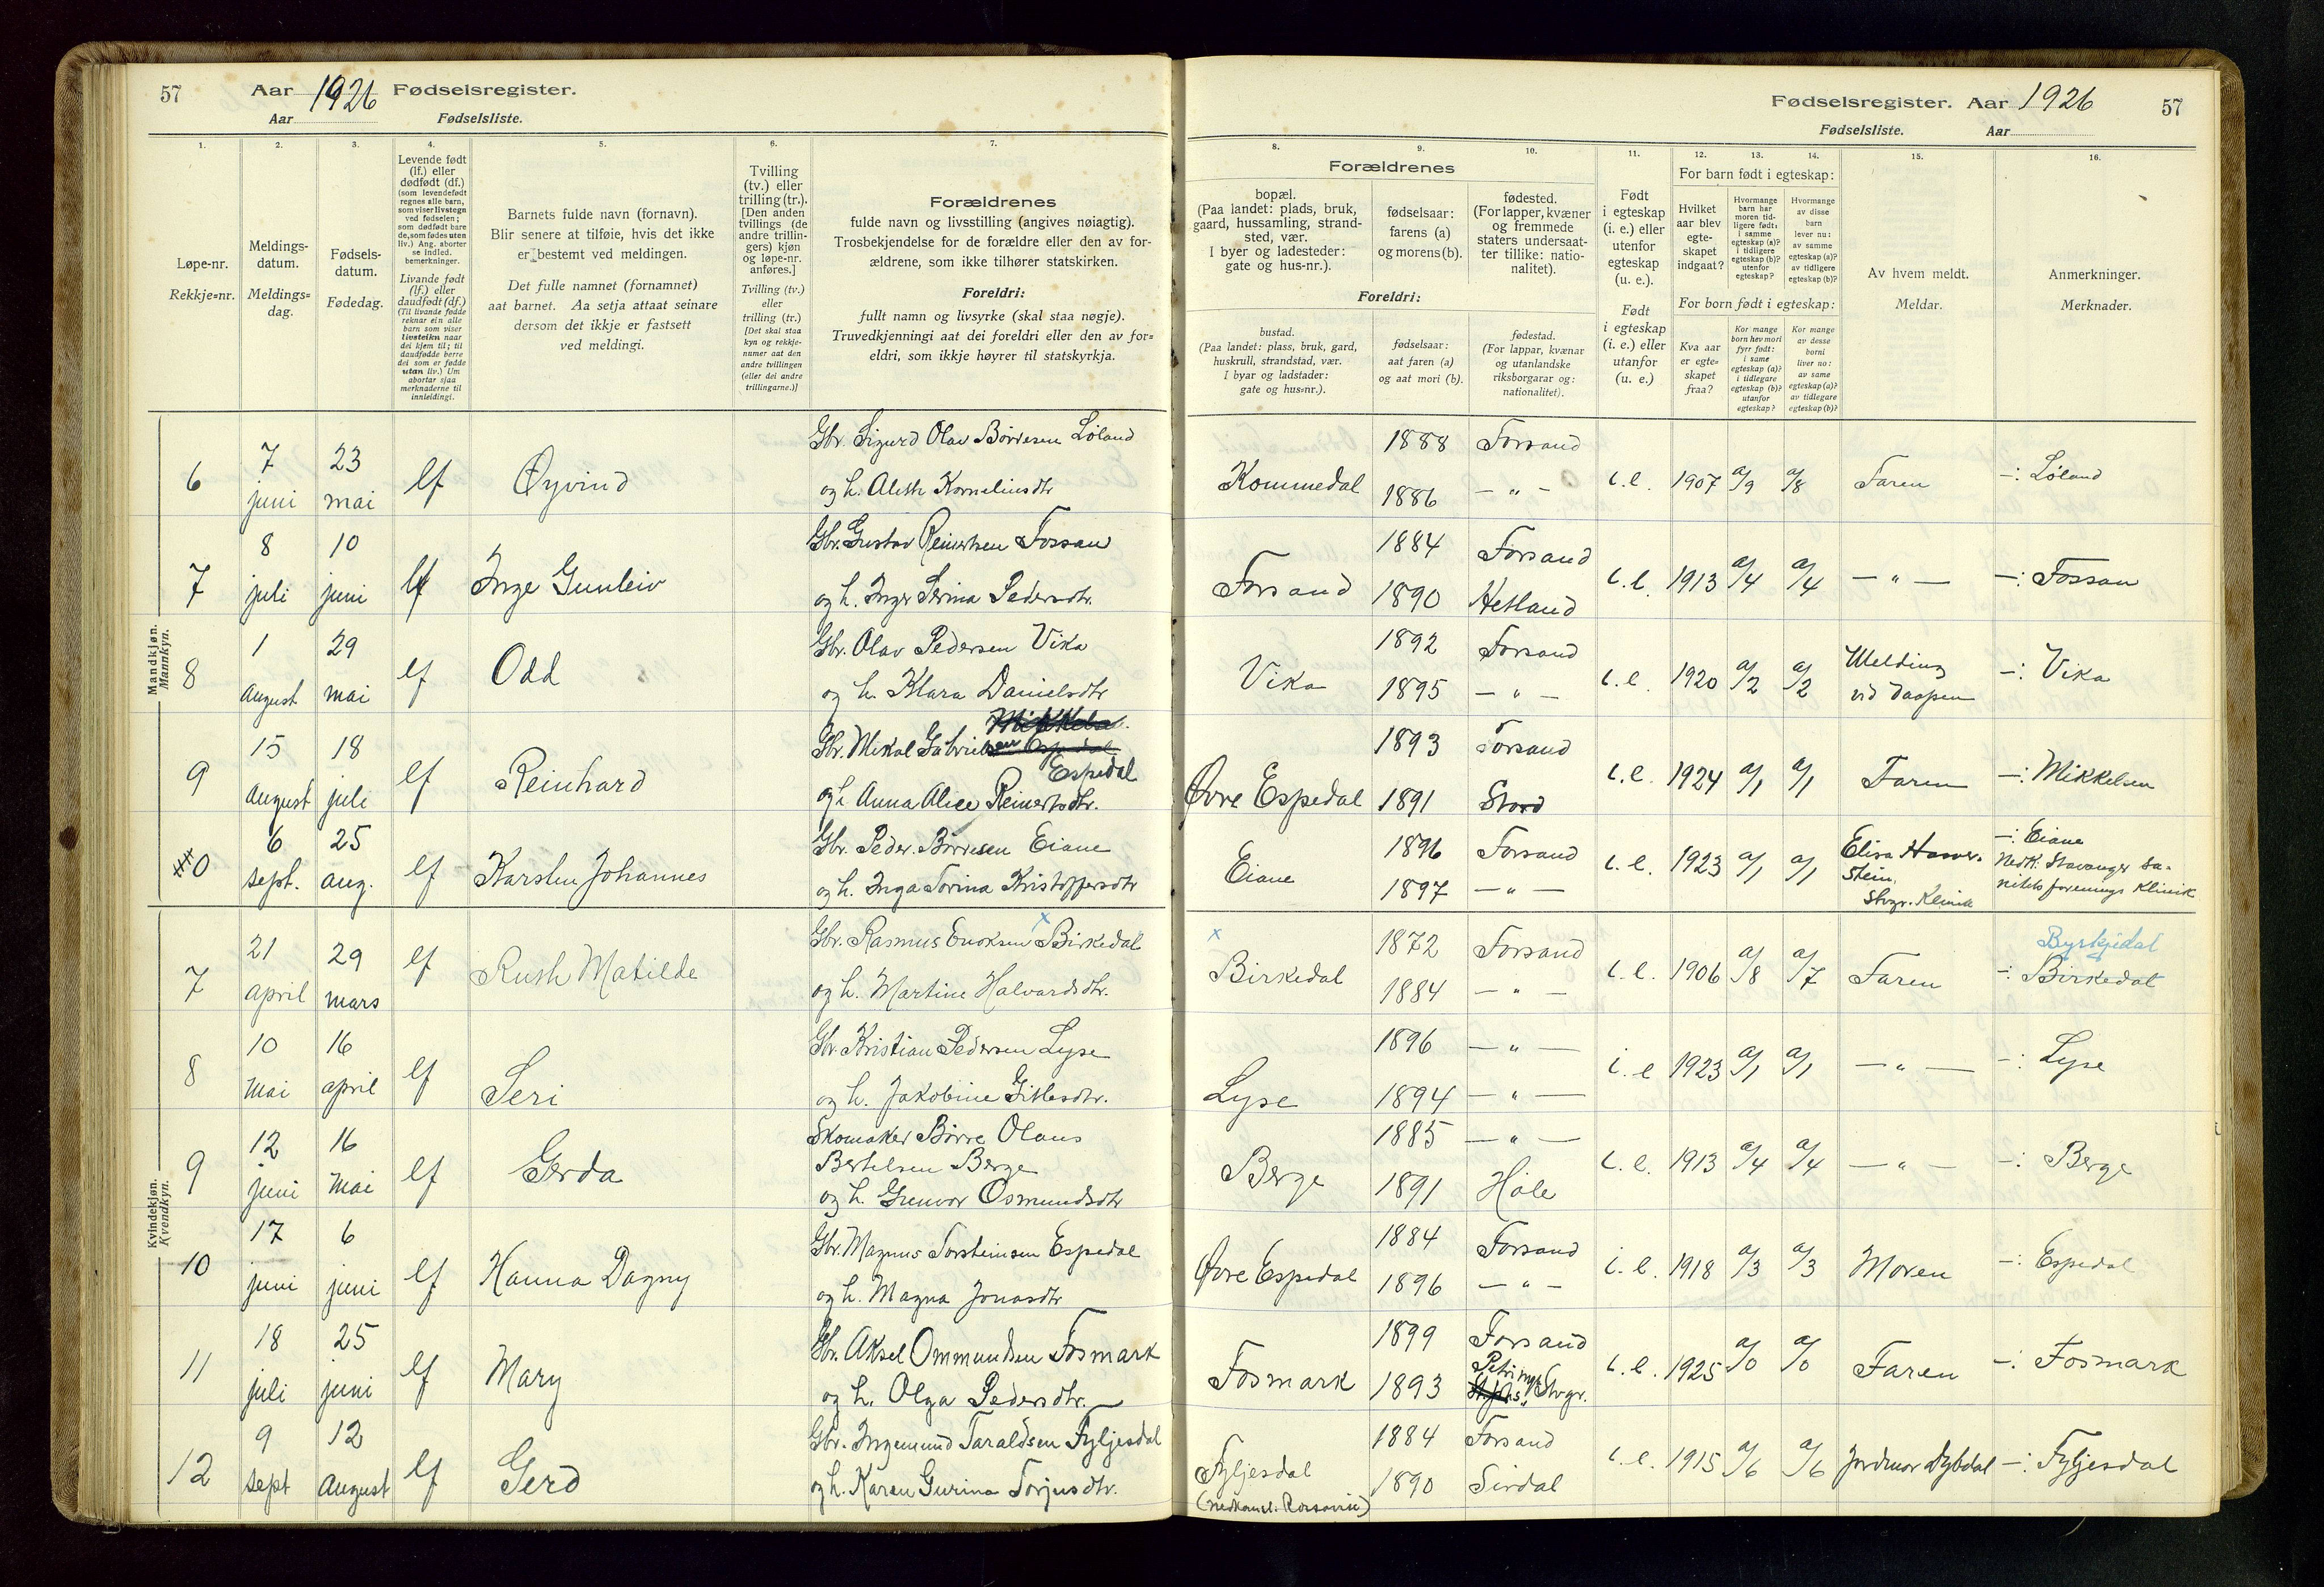 57 Aar 1926 Fødselsregister.
Aar Fødselsliste.
1. 2. 3. 4. 5. 6. 7.
Løpe-nr.
Rekkje=nr.
Meldings-
datum.
Meldings=
dag.
Fødsels-
datum.
Fødedag.
Levende født
(lf.) eller
dødfødt (df.)
(som levendefødt
regnes alle barn,
som viser livstegn
ved fødselen;
som dødfødt bare
de, som fødes uten
liv.) Ang. aborter
se indled.
bemerkninger.
Livande født
(lf.) eller
daudfødt (df.)
(Til livande fødde
reknar ein alle
barn som viser
livsteikn naar
dei kjem til; til
daudfødde berre
dei som er fødde
utan liv.) Um
abortar sjaa
merknaderne til
innleidingi.
Barnets fulde navn (fornavn).
Blir senere at tilføie, hvis det ikke
er bestemt ved meldingen.
Det fulle namnet (fornamnet)
aat barnet. Aa setja attaat seinare
dersom det ikkje er fastsett
ved meldingi.
Tvilling
(tv.) eller
trilling (tr.).
[Den anden
tvillings (de
andre trillin-
gers) kjøn
og løpe-nr.
anføres.]
Tvilling (tv.)
eller
trilling (tr.)
[Det skal staa
kyn og rekkje-
numer aat den
andre tvillingen
(eller dei andre
trillingarne.)]
Forældrenes
fulde navn og livsstilling (angives nøiagtig).
Trosbekjendelse for de forældre eller den av for-
ældrene, som ikke tilhører statskirken.
Foreldri:
fullt namn og livsyrke (skal staa nøgje).
Truvedkjenningi aat dei foreldri eller den av for=
eldri, som ikkje høyrer til statskyrkja.
Mandkjøn.
Mannkyn.
6 7 juni 23 mai lf Øyvind Gbr. Sigurd Olav Børresen Løland
og h. Alette Korneliusdtr
7 8 juli 10 juni lf Inge Gunleiv Gbr. Gustav Reinertsen Fossan
og h. Inger Serina Pedersdtr.
8 1 august 29 mai lf Odd Gbr. Olav Pedersen Vika
og h. Klara Danielsdtr
9 15 august 18 juli lf Reinhard Gbr. Mikal Gabrielsen Espedal
Espedal
og h. Anna Alice Reinertsdtr.
10 6 sept. 25 aug. lf Karsten Johannes Gbr. Peder Børresen Eiane
og h. Inga Torina Kristoffersdtr
Kvindekjøn.
Kvendkyn.
7 21 april 29 mars lf Ruth Matilde Gbr. Rasmus Enoksen x Birkedal
og h. Martine Halvardsdtr.
8 10 mai 16 april lf Seri Gbr. Kristian Pedersen Lyse
og h. Jakobine Gitlesdtr.
9 12 juni 16 mai lf Gerda Skomaker Børre Olaus
Bertelsen Berge
og h. Gunvor Osmundsdtr
10 17 juni 6 juni lf Hanna Dagny Gbr. Magnus Torsteinsen Espedal
og h. Magna Jonasdtr
11 18 juli 25 juni lf Mary Gbr. Aksel Ommundsen Fosmark
og h. Olga Pedersdtr.
12 9 sept 12 august lf Gerd Gbr. Ingemund Taraldsen Fyljesdal
og h. Karen Gurina Torjusdtr.
Fødselsregister. Aar 1926 57
Fødselsliste. Aar
8. 9. 10. 11. 12. 13. 14. 15. 16.
Forældrenes
bopæl.
(Paa landet: plads, bruk,
gaard, hussamling, strand-
sted, vær.
I byer og ladesteder:
gate og hus-nr.).
Foreldri:
bustad.
(Paa landet: plass, bruk, gard,
huskrull, strandstad, vær.
I byar og ladstader:
gate og hus=nr.).
fødselsaar:
farens (a)
og morens (b).
fødselsaar:
aat faren (a)
og aat mori (b).
fødested.
(For lapper, kvæner
og fremmede
staters undersaat-
ter tillike: natio-
nalitet).
fødestad.
(For lappar, kvænar
og utanlandske
riksborgarar og:
nationalitet).
Født
i egteskap
(i. e.) eller
utenfor
egteskap
(u. e.).
Født
i egteskap
(i. e.) eller
utanfor
egteskap
(u. e.)
For barn født i egteskap:
Hvilket
aar blev
egte-
skapet
indgaat?
Hvormange
barn har
moren tid-
ligere født:
i samme
egteskap (a)?
i tidligere
egteskap (b)?
utenfor
egteskap?
Hvormange
av disse
barn
lever nu:
av samme
egteskap (a)?
av tidligere
egteskap (b)?
For born født i egteskap:
Kva aar
er egte=
skapet
fraa?
Kor mange
born hev mori
fyrr født:
i same
egteskap (a)?
i tidlegare
egteskap (b)?
utanfor
egteskap?
Kor mange
av desse
borni
liver no:
av same
egteskap (a)?
av tidlegare
egteskap (b)?
Av hvem meldt.
Meldar.
Anmerkninger.
Merknader.
Kommedal 1888 Forsand
1886 — " — i. e. 1907 a/9 a/8 Faren —: Løland
Forsand 1884 Forsand
1890 Hetland i. e. 1913 a/4 a/4 — " — —: Fossan
Vika 1892 Forsand
1895 — " — i. e. 1920 a/2 a/2 Melding
vid daapen —: Vika
Øvre Espedal 1893 Forsand
1891 Stord i. e. 1924 a/1 a/1 Faren —: Mikkelsen
Eiane 1896 Forsand
1897 — " — i. e. 1923 a/1 a/1 Elisa
stein.
Stvgr. Klinik
—: Eiane
Nedk: Stavanger Sa-
nitetsforenings Klinik
x
Birkedal 1872 Forsand
1884 — " — i. e. 1906 a/8 a/7 Faren Byrkjedal
—: Birkedal
Lyse 1896 — " —
1894 — " — i. e 1923 a/1 a/1 — " — —: Lyse
Berge 1885 — " —
1891 Høle i. e. 1913 a/4 a/4 — " — —: Berge
Øvre Espedal 1884 Forsand
1896 — " — i. e. 1918 a/3 a/3 Moren —: Espedal
Fosmark 1899 Forsand
1893 Petri Stvgr. i. e. 1925 a/0 a/0 Faren —: Fosmark
Fyljesdal 1884 Forsand
1890 Sirdal i. e. 1915 a/6 a/6 Jordmor Dybdal —: Fyljesdal